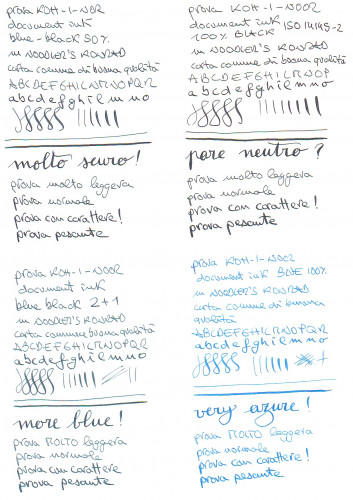 prova KOH-I-NOOR
document ink
blue-black 50%
in NOODLER'S KONRAD
carta comune di buona qualità
ABCDEFGHILMNOPQR
abcdefghilmno
molto scuro!
prova molto leggera
prova normale
prova con carattere!
prova pesante
prova KOH-I-NOOR
document ink ISO 14145-2
100% BLACK
in NOODLER'S KONRAD
carta comune di buona qualità
ABCDEFGHILMNOP
abcdefghilmno
pare neutro?
prova molto leggera
prova normale
prova con carattere!
prova pesante
prova KOH-I-NOOR
document ink
blue black 2+1
in NOODLER'S KONRAD
carta comune buona qualità
ABCDEFGHILMNOPQR
abcdefghilmno
more blue!
prova MOLTO leggera
prova normale
prova con carattere!
prova pesante
prova KOH-I-NOOR
document ink BLUE 100%
in NOODLER'S KONRAD
carta comune di buona
qualità
ABCDEFGHILMNOPQR
abcdefghilmno
very azure!
prova MOLTO leggera
prova normale
prova con carattere!
prova pesante